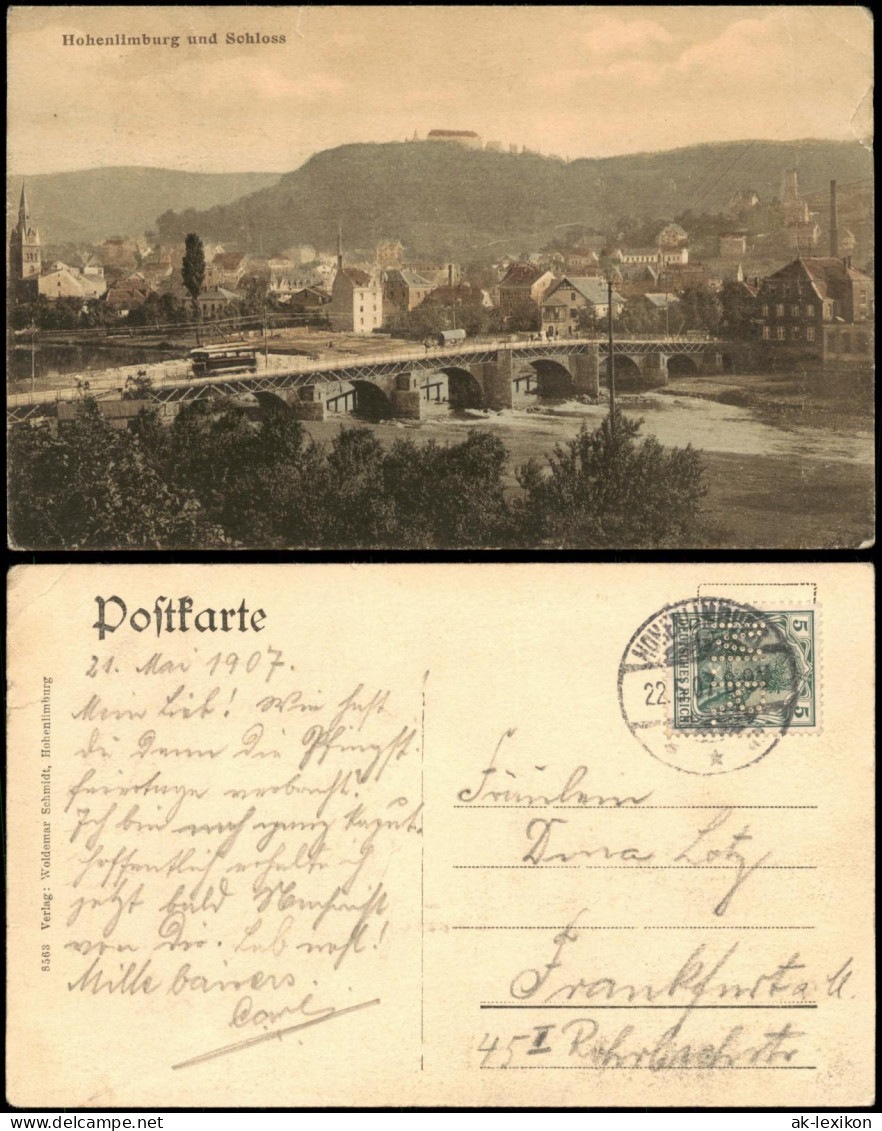 Hohenlimburg und Schloss
Postkarte
21. Mai 1907.
Mein Lieb! Wie hast
du denn die Pfingst-
feiertage verbracht?
Ich bin noch ganz kaput.
hoffentlich erhalte ich
jetzt bald Nachricht
von Dir. Leb wohl!
Mille baisers
Carl
8563 Verlag: Woldemar Schmidt, Hohenlimburg
HOHENLIMBURG
22.
5
5
DEUTSCHES REICH
Fräulein
Dina Lotz
Frankfurt a M.
45 I Rohrbachstr
ak-ansichtskarten.de
ak-lexikon.de